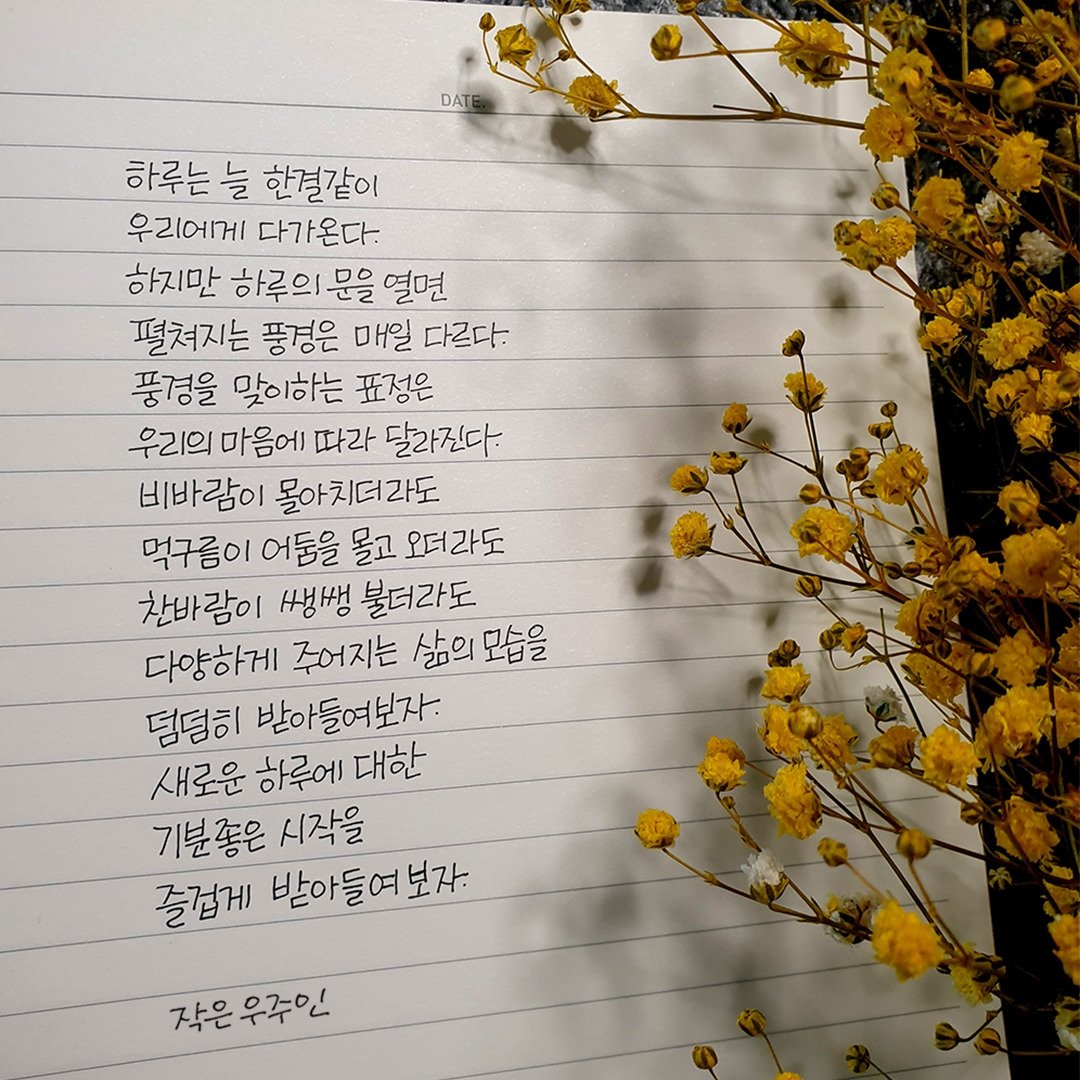 DATE.
하루는 늘 한결같이
우리에게 다가온다.
하지만 하루의 문을 열면
펼쳐지는 풍경은 매일 다르다.
풍경을 맞이하는 표정은
우리의 마음에 따라 달라진다.
비바람이 몰아치더라도
먹구름이 어둠을 몰고 오더라도
찬바람이 쌩쌩 불더라도
다양하게 주어지는 삶의 모습을
덤덤히 받아들여보자.
새로운 하루에 대한
기분좋은 시작을
즐겁게 받아들여보자.
작은우주인